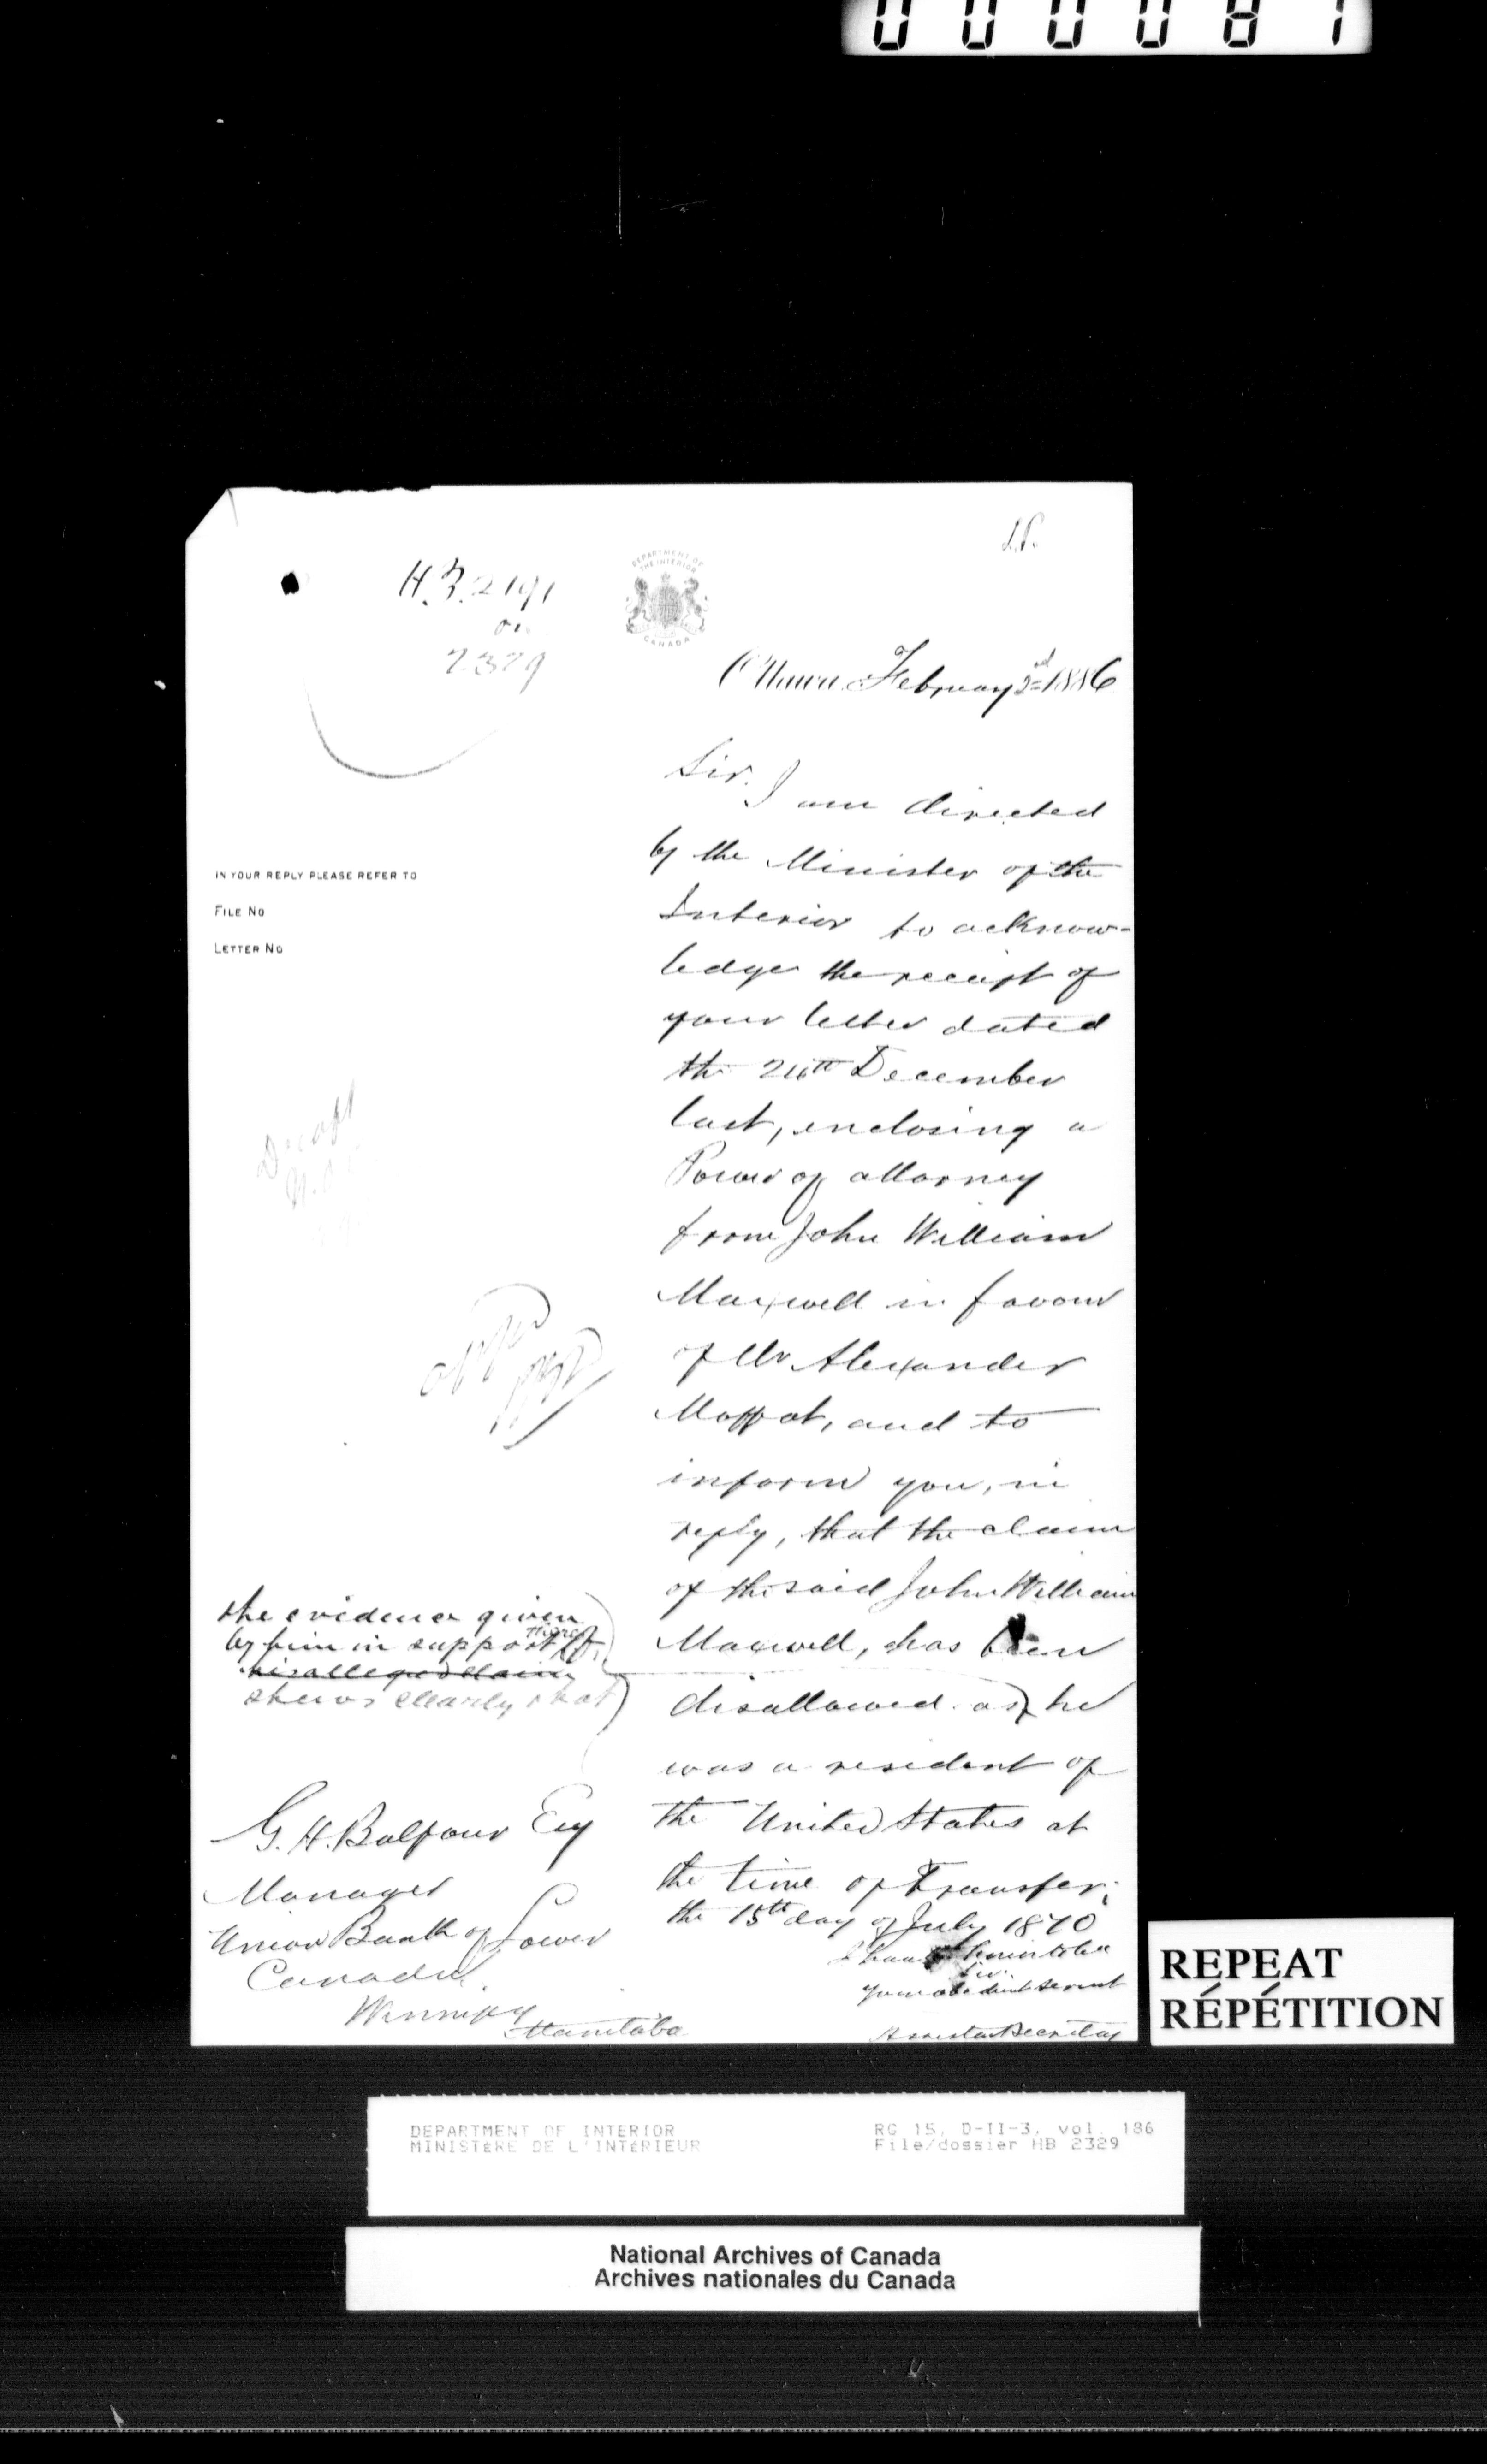 000081
H.B. 2191
on
2329
DEPARTMENT OF
THE INTERIOR
CANADA
Ottawa February 2nd 1886
Sir.
I am directed
by the Minister of the
Interior to acknow-
ledge the receipt of
your letter dated
the 24th December
last, enclosing a
Power of attorney
from John William
Maxwell in favour
of Mr Alexander
Moffat, and to
inform you, in
reply, that the claim
of the said John William
Maxwell, has been
disallowed as he
was a resident of
the United States at
the time of Transfer,
the 15th day of July 1870
I have
Sir.
your obedient servant
Assistant Secretary
IN YOUR REPLY PLEASE REFER TO
FILE NO
LETTER NO
Draft
the evidence given
by him in support thereof
his alleged claim
shews clearly that
G. H. Balfour Esq
Manager
Union Bank of Lower
Canada
Winnipeg
Manitoba
REPEAT
RÉPÉTITION
DEPARTMENT OF INTERIOR
MINISTÈRE DE L'INTÉRIEUR
RG 15, D-II-3, vol. 186
File/dossier HB 2329
National Archives of Canada
Archives nationales du Canada